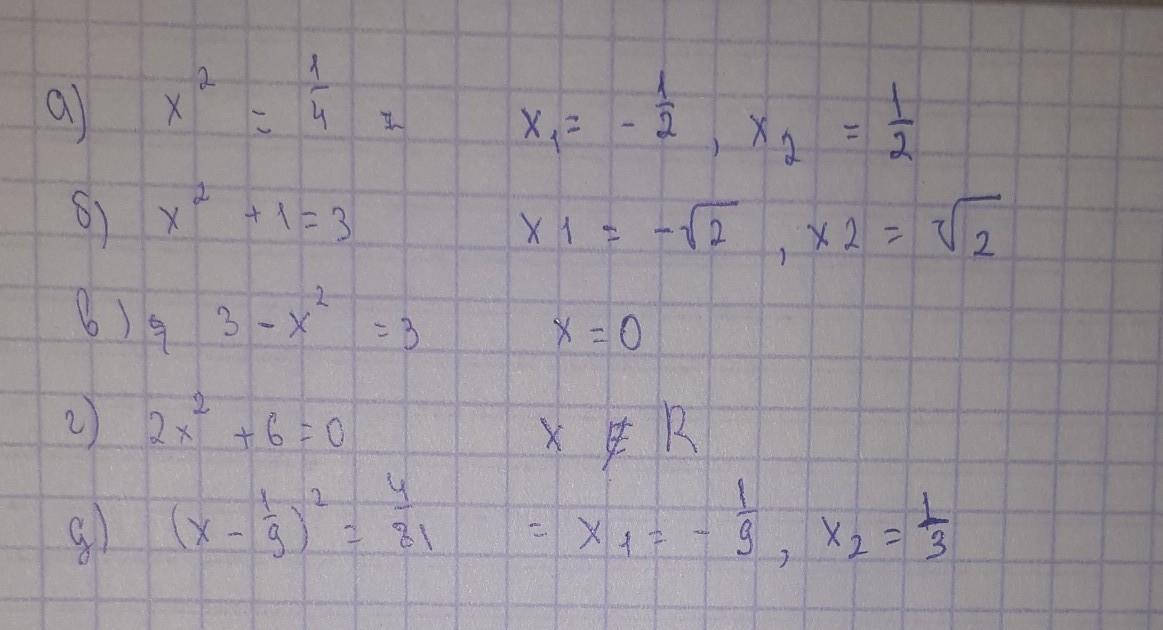 а) x² = 1/4 = x₁ = - 1/2 , x₂ = 1/2
б) x² + 1 = 3 x1 = -√2 , x2 = √2
в) 3 - x² = 3 x = 0
г) 2x² + 6 = 0 x ∉ R
д) (x - 1/9)² = 4/81 = x₁ = - 1/9 , x₂ = 1/3